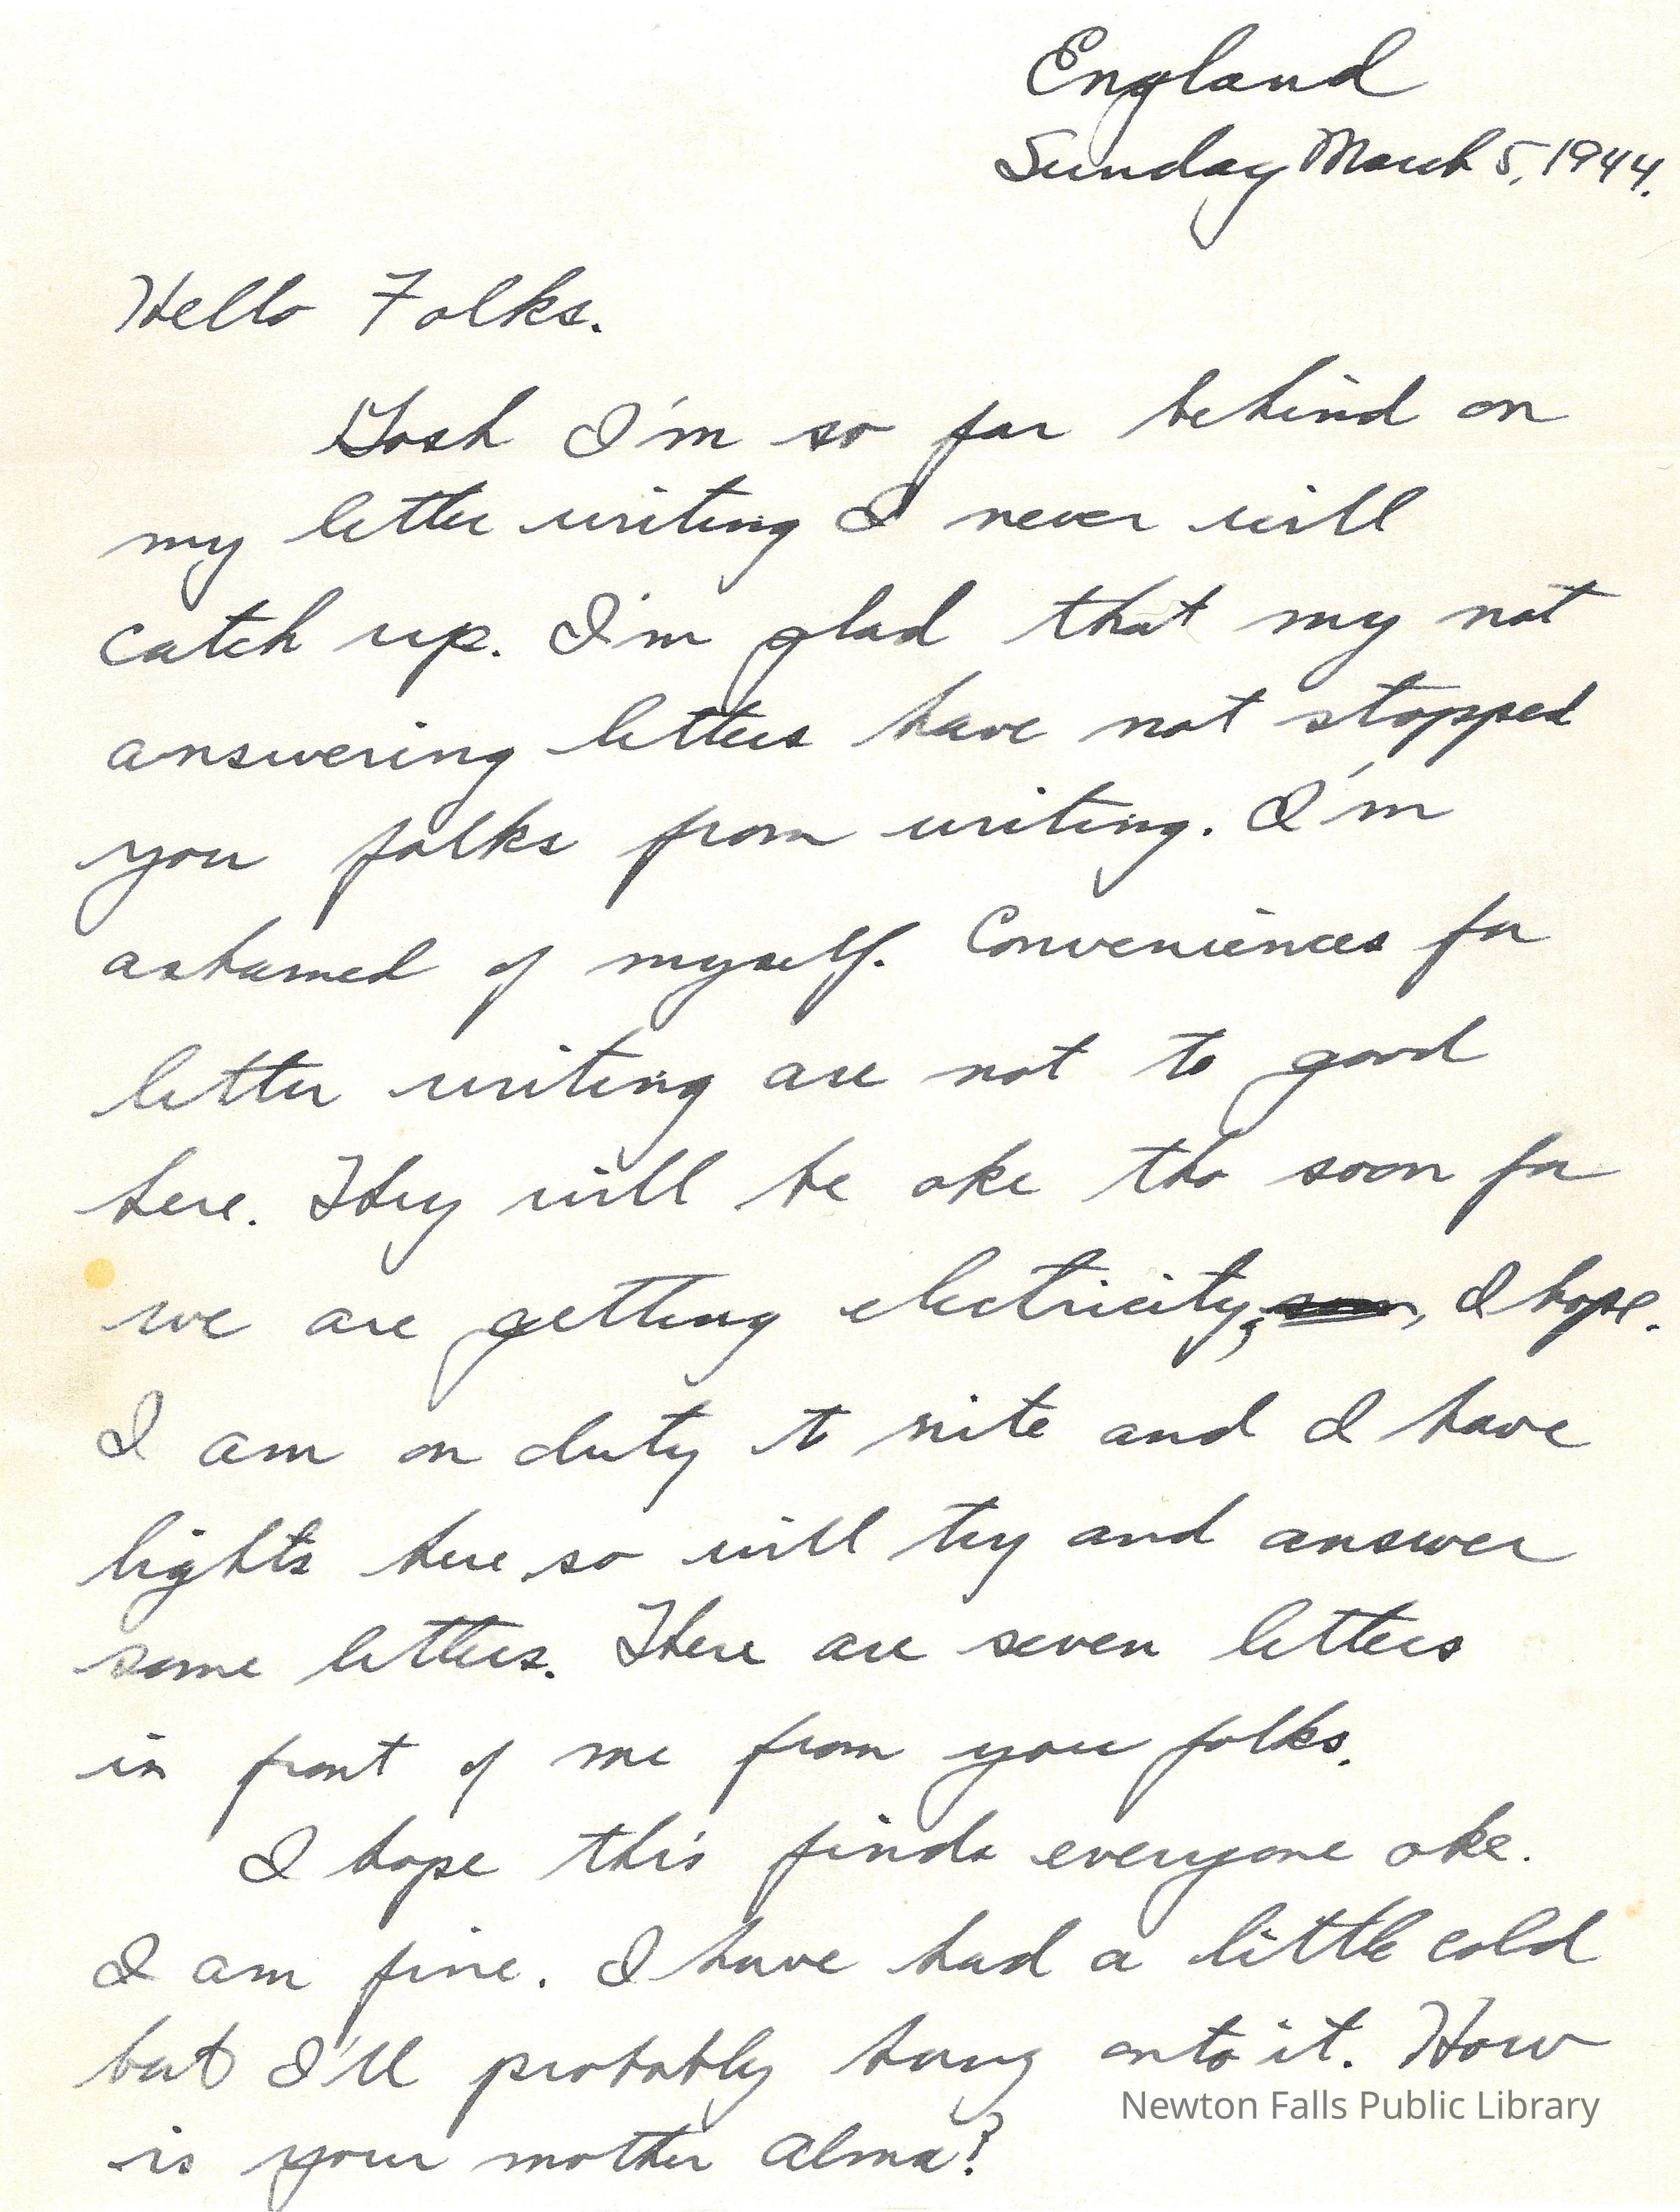 England
Sunday March 5, 1944.
Hello Folks.
Gosh I'm so far behind on
my letter writing I never will
catch up. I'm glad that my not
answering letters have not stopped
you folks from writing. I'm
ashamed of myself. Conveniences for
letter writing are not to good
here. They will be oke tho soon for
we are getting electricity, soon, I hope.
I am on duty to nite and I have
lights here so will try and answer
some letters. There are seven letters
in front of me from you folks.
I hope this finds everyone oke.
I am fine. I have had a little cold
but I'll probably hang onto it. How
is your mother Alma?
Newton Falls Public Library